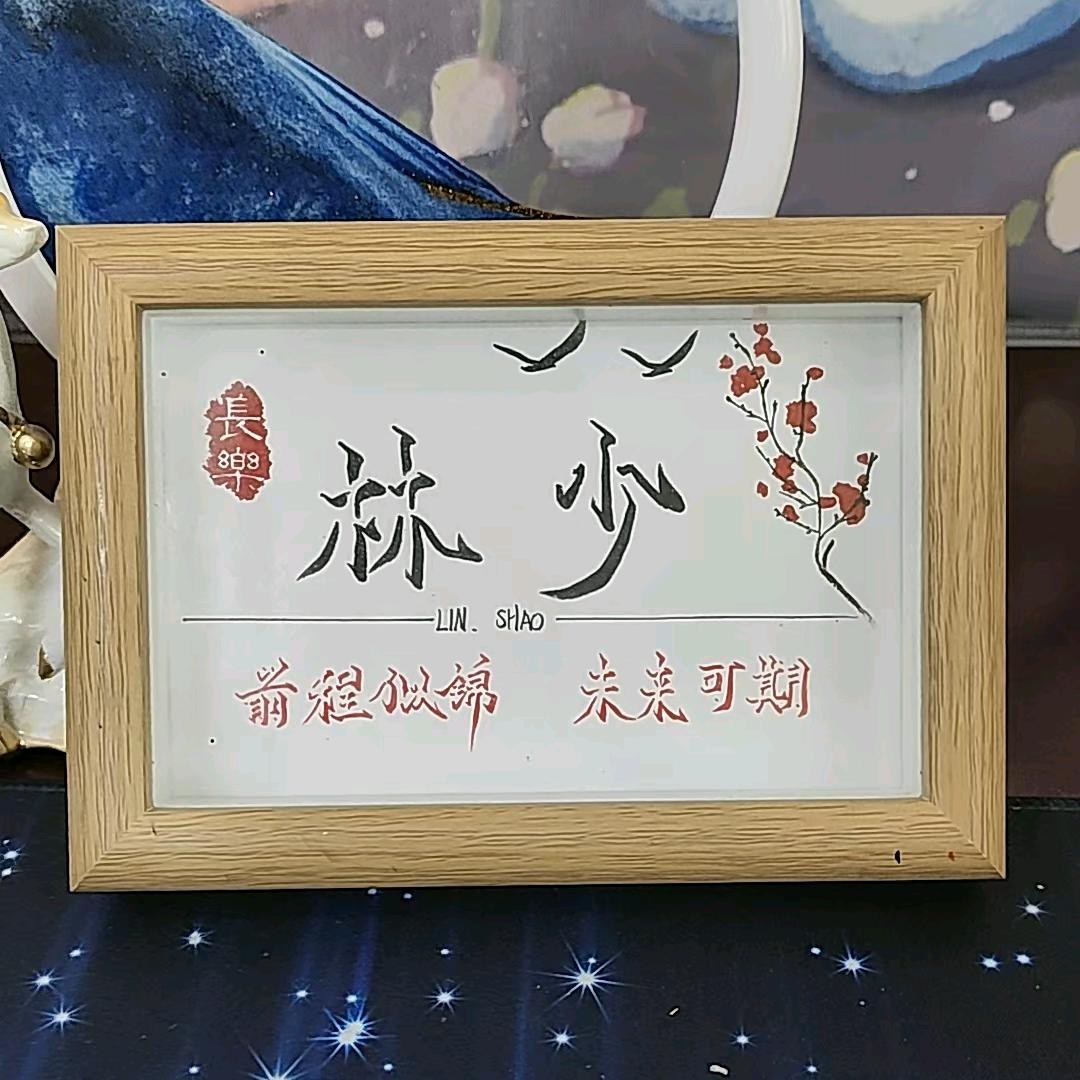 長樂
林少
LIN. SHAO
前程似錦 未来可期